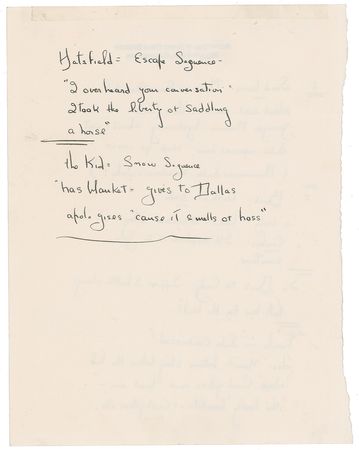 Hatsfield = Escape Sequence -
"I overheard your conversation -
I took the liberty of Saddling
a horse"
the Kid = Snow Sequence
"has blanket = gives to Dallas
apologises "cause it smells of hoss"